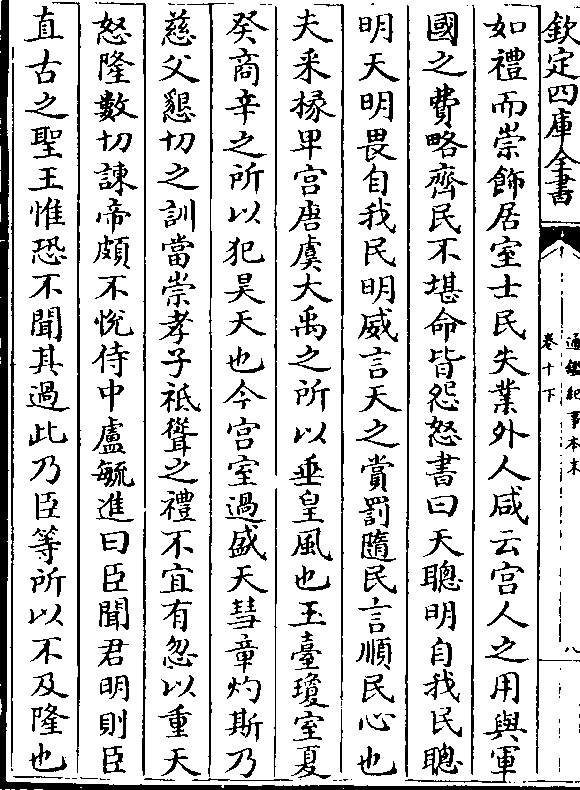 欽定四庫全書
通鑑紀事本末
卷十下
八
如禮而崇飾居室士民失業外人咸云宫人之用與軍
國之費略齊民不堪命皆怨怒書曰天聰明自我民聰
明天明畏自我民明威言天之賞罰隨民言順民心也
夫采椽卑宫唐虞大禹之所以垂皇風也玉臺瓊室夏
癸商辛之所以犯昊天也今宫室過盛天彗章灼斯乃
慈父懇切之訓當崇孝子祗聳之禮不宜有忽以重天
怒隆數切諫帝頗不悅侍中盧毓進曰臣聞君明則臣
直古之聖王惟恐不聞其過此乃臣等所以不及隆也